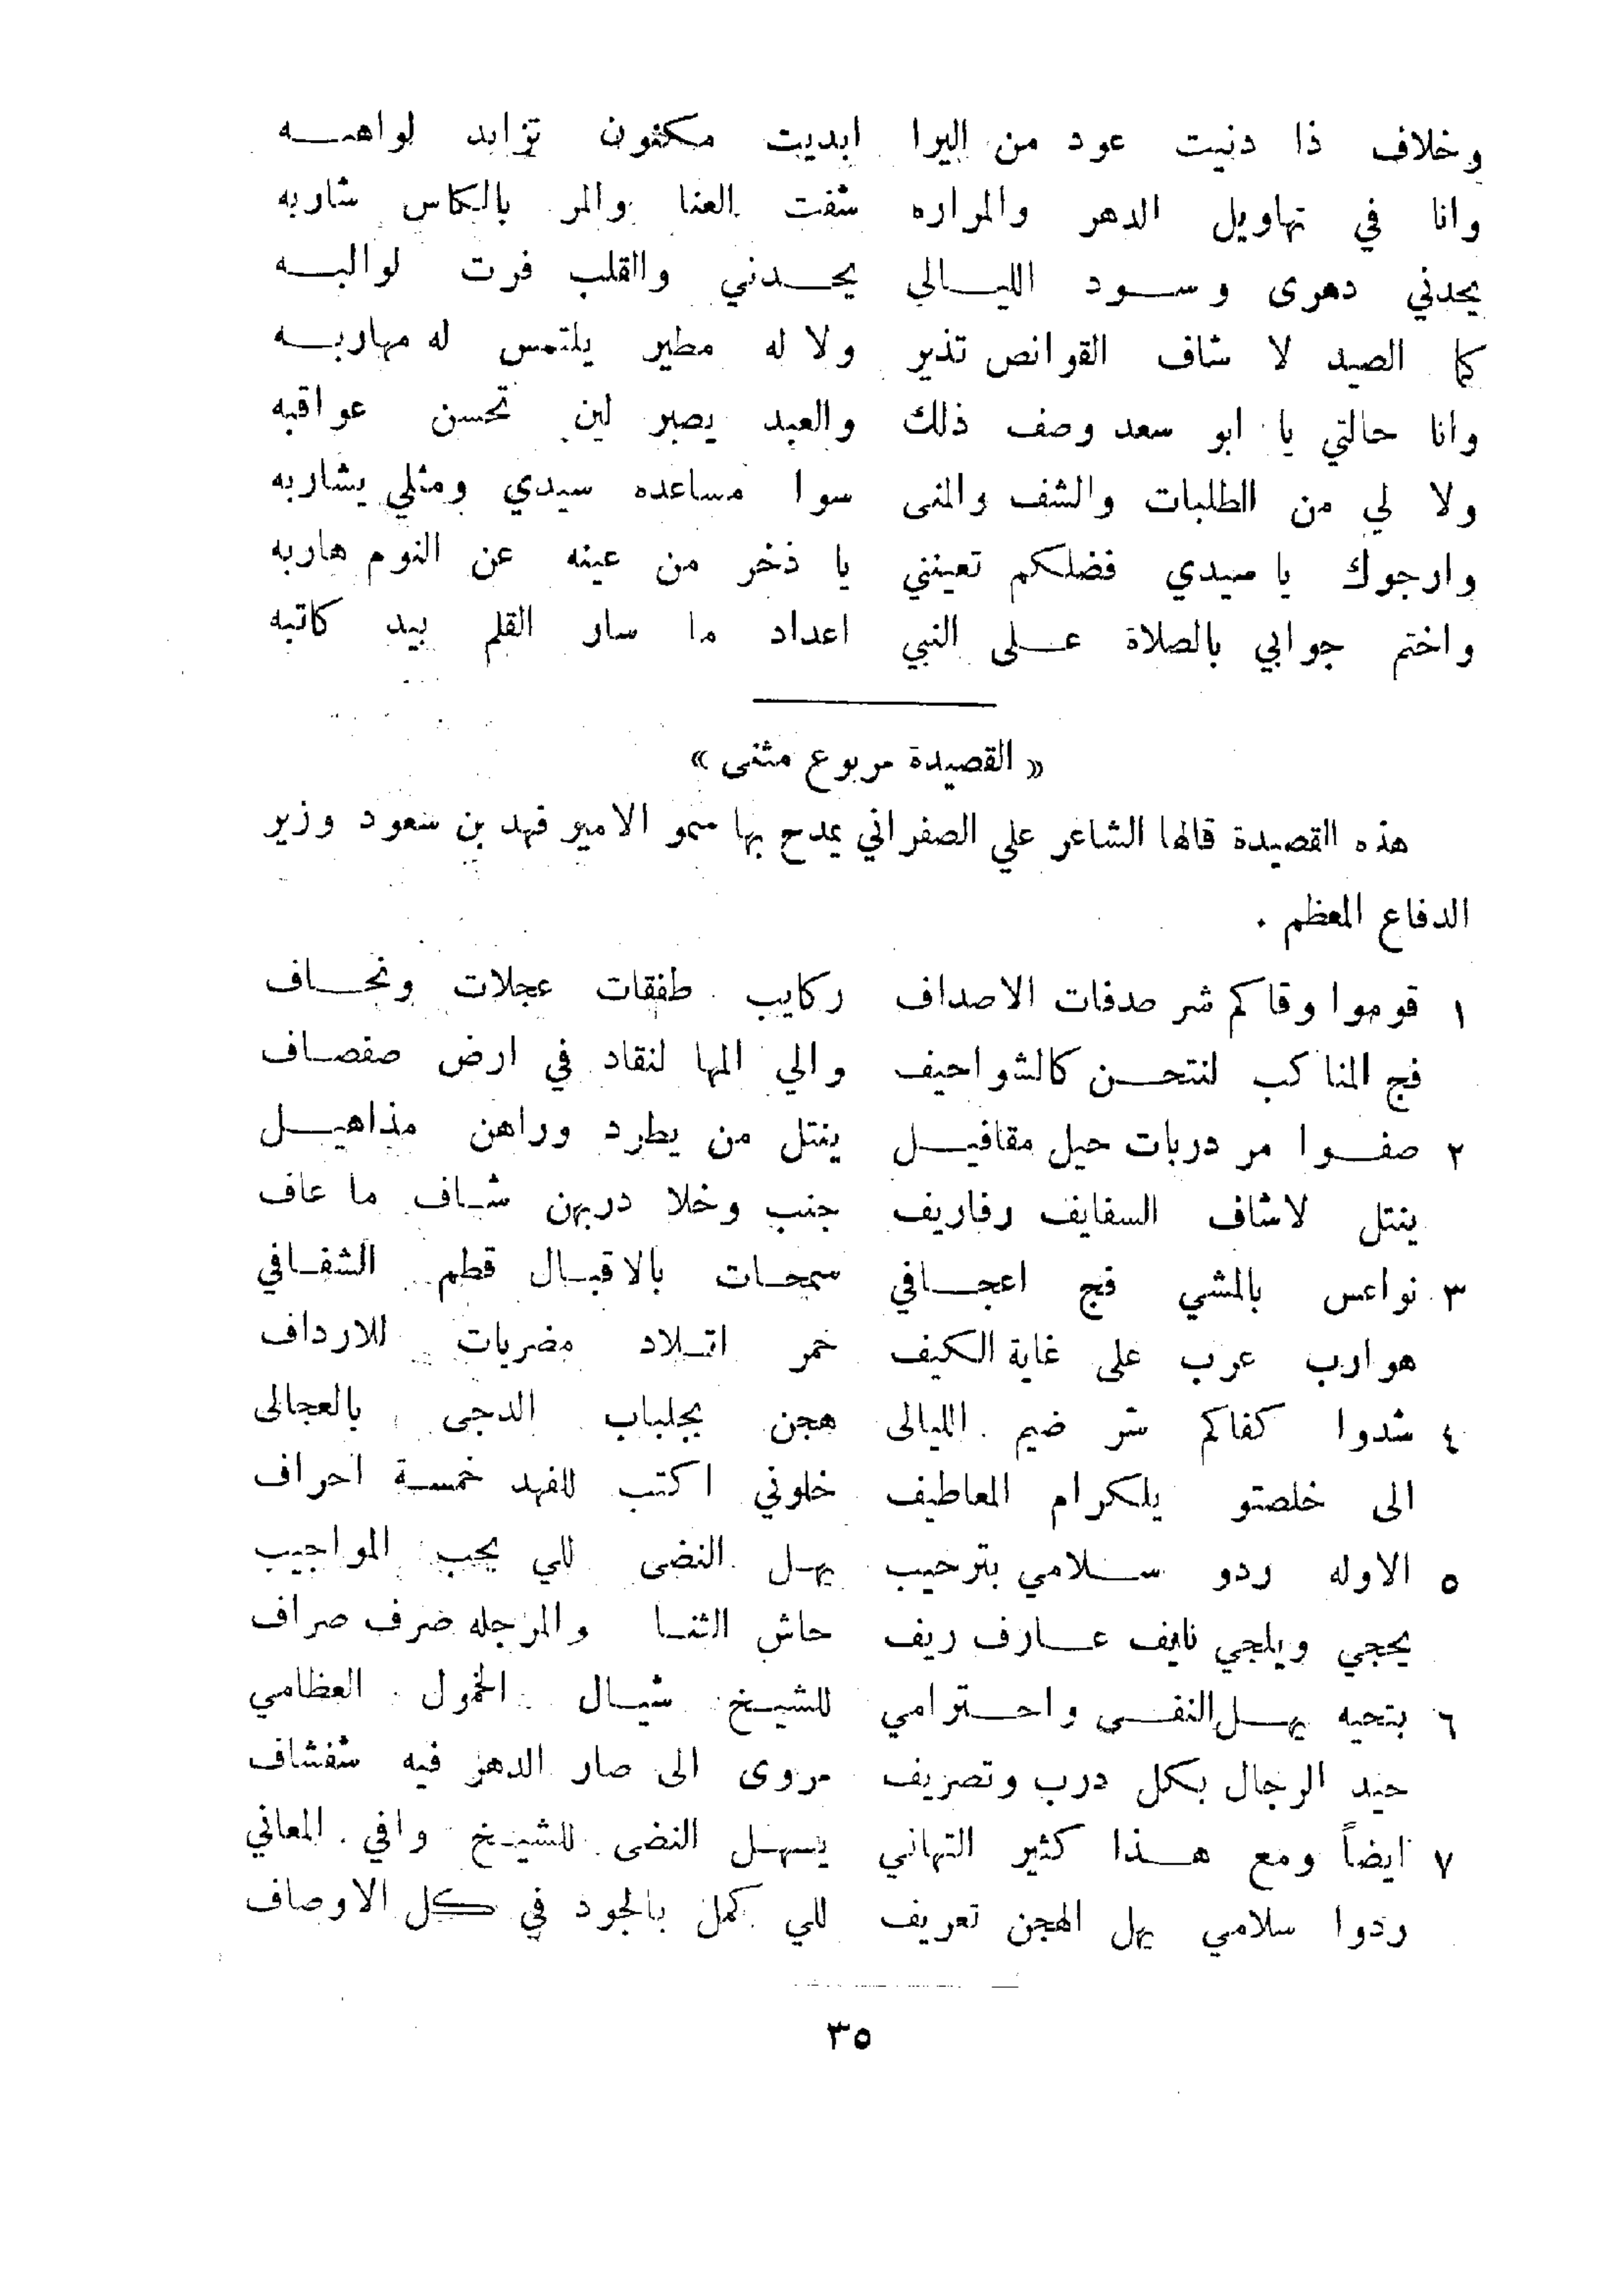 وخلاف ذا دنيت عود من اليرا ابديت مكنون تزايد لواهبه
وانا في تهاويل الدهر والمراره شفت العنا والمر بالكاس شاربه
يحدني دهرى وسود الليالي يحدني والقلب فرت لوالبه
كما الصيد لا شاف القوانص تذير ولا له مطير يلتمس له مهاربه
وانا حالتي يا ابو سعد وصف ذلك والعبد يصبر لين تحسن عواقبه
ولا لي من الطلبات والشف والمنى سوا مساعده سيدي ومثلي يشاربه
وارجوك يا سيدي فضلكم تعينني يا ذخر من عينه عن النوم هاربه
واختم جوابي بالصلاة على النبي اعداد ما سار القلم بيد كاتبه
« القصيدة مربوع مثنى »
هذه القصيدة قالها الشاعر علي الصفراني يمدح بها سمو الامير فهد بن سعود وزير
الدفاع المعظم .
١ قوموا وقاكم شر صدفات الاصداف ركايب طفقات عجلات ونحاف
فج المناكب لنتحن كالشواحيف والي المها لنقاد في ارض صفصاف
٢ صفوا مر دربات حيل مقافيل ينتل من يطرد وراهن مذاهيل
ينتل لاشاف السفايف رفاريف جنب وخلا دربهن شاف ما عاف
٣ نواعس بالمشي فج اعجافي سمحات بالاقبال قطم الشفافي
هوارب عرب على غاية الكيف خمر اتلاد مضريات للارداف
٤ شدوا كفاكم شر ضيم الليالى هجن بجلباب الدجى بالعجالى
الى خلصتو يلكرام المعاطيف خلوني اكتب للفهد خمسة احراف
٥ الاوله ردو سلامي بترحيب يهل النضى للي يحب المواجيب
يحجي ويلجي نايف عارف ريف حاش الثنا والمرجله صرف صراف
٦ بتحيه يهل النفسى واحترامي للشيخ شيال الخمول العظامي
حيد الرجال بكل درب وتصريف مروى الى صار الدهر فيه شفشاف
٧ ايضاً ومع هذا كثير التهاني يسهل النضى للشيخ وافي المعاني
ردوا سلامي يهل الهجن تعريف للي كمل بالجود في كل الاوصاف
٣٥